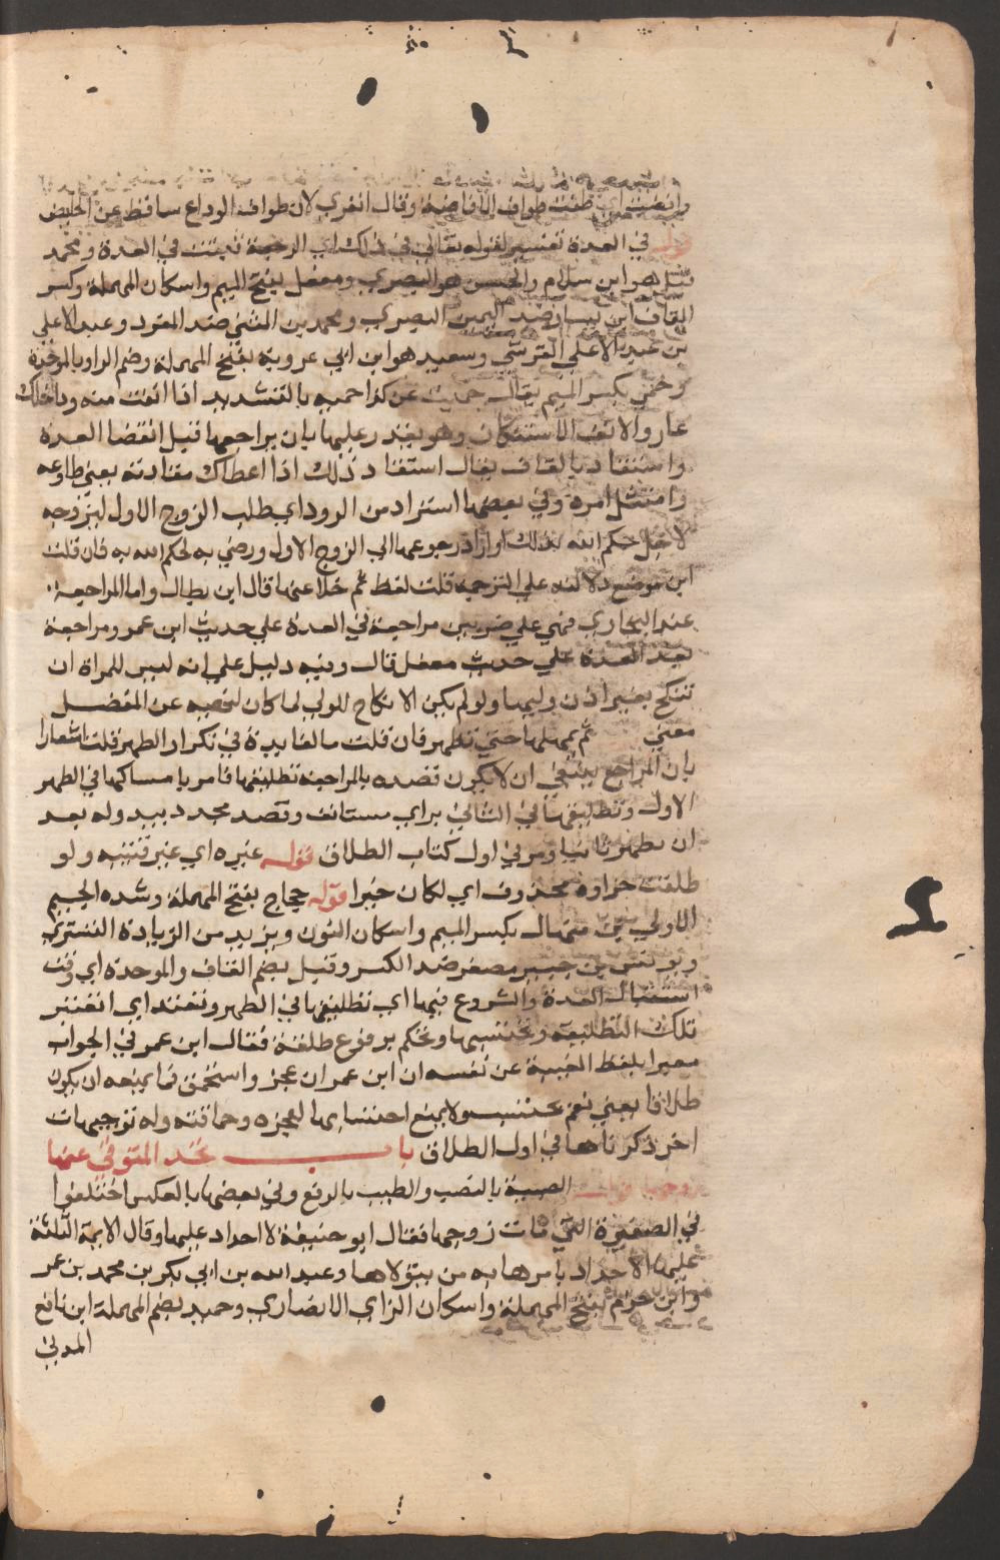 وانفت اي طفت طواف الافاضة وقال انفري لان طواف الوداع ساقط عن الحايض
قوله في العدة تفسير لقوله تعالى في ذلك اي الرجعة ثبتت في العدة ومحمد
قيل هو ابن سلام والحسن هو البصري ومعقل بفتح الميم واسكان المهملة وكسر
القاف ابن يسار ضد اليمين البصري ومحمد بن المثنى ضد المفرد وعبد الاعلى
بن عبد الاعلى القرشي وسعيد هو ابن ابي عروبة بفتح المهملة وضم الراء وبالموحدة
وحمي بكسر الميم يقال حميت عن كذا حمية بالتشديد اذا انفت منه وداخلك
عار والانف الاستنكاف وهو يقدر عليها بان يراجعها قبل انقضا العدة
واستقاد بالقاف يقال استقاد ذلك اذا اعطاك مقادته يعني طاوعه
وامتثل امره وفي بعضها استراد من الرود اي طلب الزوج الاول ليزوجه
لاجل حكم الله بذلك او اراد رجوعها الى الزوج الاول ورضي به لحكم الله به فان قلت
اين موضع دلالته علي الترجمة قلت لفظ ثم خلا عنها قال ابن بطال واما المراجعة
عند البخاري فهي علي ضربين مراجعة في العدة علي حديث ابن عمر ومراجعة
بعد العدة علي حديث معقل قال وفيه دليل علي انه ليس للمراة ان
تنكح بغير اذن وليها ولو لم يكن الانكاح للولي لما كان لنهيه عن العضل
معني ثم يمهلها حتي تطهر فان قلت ما الفايدة في تكرار الطهر قلت اشعارا
بان المراجع ينبغي ان لا يكون قصده بالمراجعة تطليقها فامر بامساكها في الطهر
الاول وتطليقها في الثاني براي مستانف وقصد مجدد يبدو له بعد
ان تطهر ثانيا ومر في اول كتاب الطلاق قوله غيره اي غير قتيبه ولو
طلقت جزاوه محذوف اي لكان خيرا قوله حجاج بفتح المهملة وشده الجيم
الاولي بن منهال بكسر الميم واسكان النون ويزيد من الزيادة التستري
ويونس بن جبير مصغر ضد الكسر وقبل بضم القاف والموحدة اي وقت
استقبال العدة والشروع فيها اي تطليقها في الطهر وتعتد اي اتعتبر
تلك التطليقة وتحتسبها وتحكم بوقوع طلقة فقال ابن عمر في الجواب
معبرا بلفظ الغيبة عن نفسه ان ابن عمر ان عجز واستحمق فما يمنعه ان يكون
طلاقا يعني نعم تحتسب ولا يمنع احتسابها لعجزه وحماقته وله توجيهات
اخر ذكرناها في اول الطلاق باب تحد المتوفى عنها
زوجها قوله الصبية بالنصب والطيب بالرفع وفي بعضها بالعكس اختلفوا
في الصغيرة التي مات زوجها فقال ابو حنيفة لا احداد عليها وقال الايمة الثلثة
عليها الاحداد يامرها به من يتولاها وعبد الله بن ابي بكر بن محمد بن عمر
وابن حزم بفتح المهملة واسكان الزاي الانصاري وحميد بضم المهملة ابن نافع
المدني